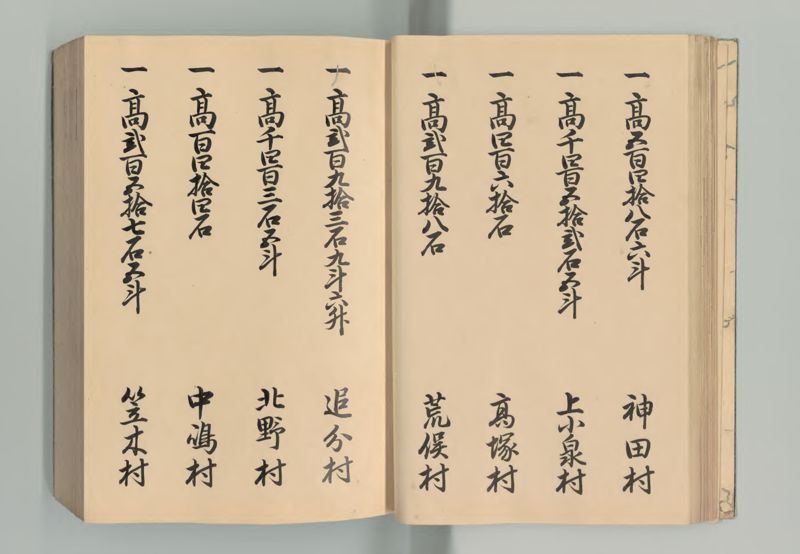 一高五百四拾八石六斗 神田村
一高千四百五拾弐石五斗 上小泉村
一高四百六拾石 高塚村
一高弐百九拾八石 荒俣村
一高弐百九拾三石九斗六升 追分村
一高千四百三石五斗 北野村
一高百四拾四石 中嶋村
一高弐百五拾七石五斗 笠木村